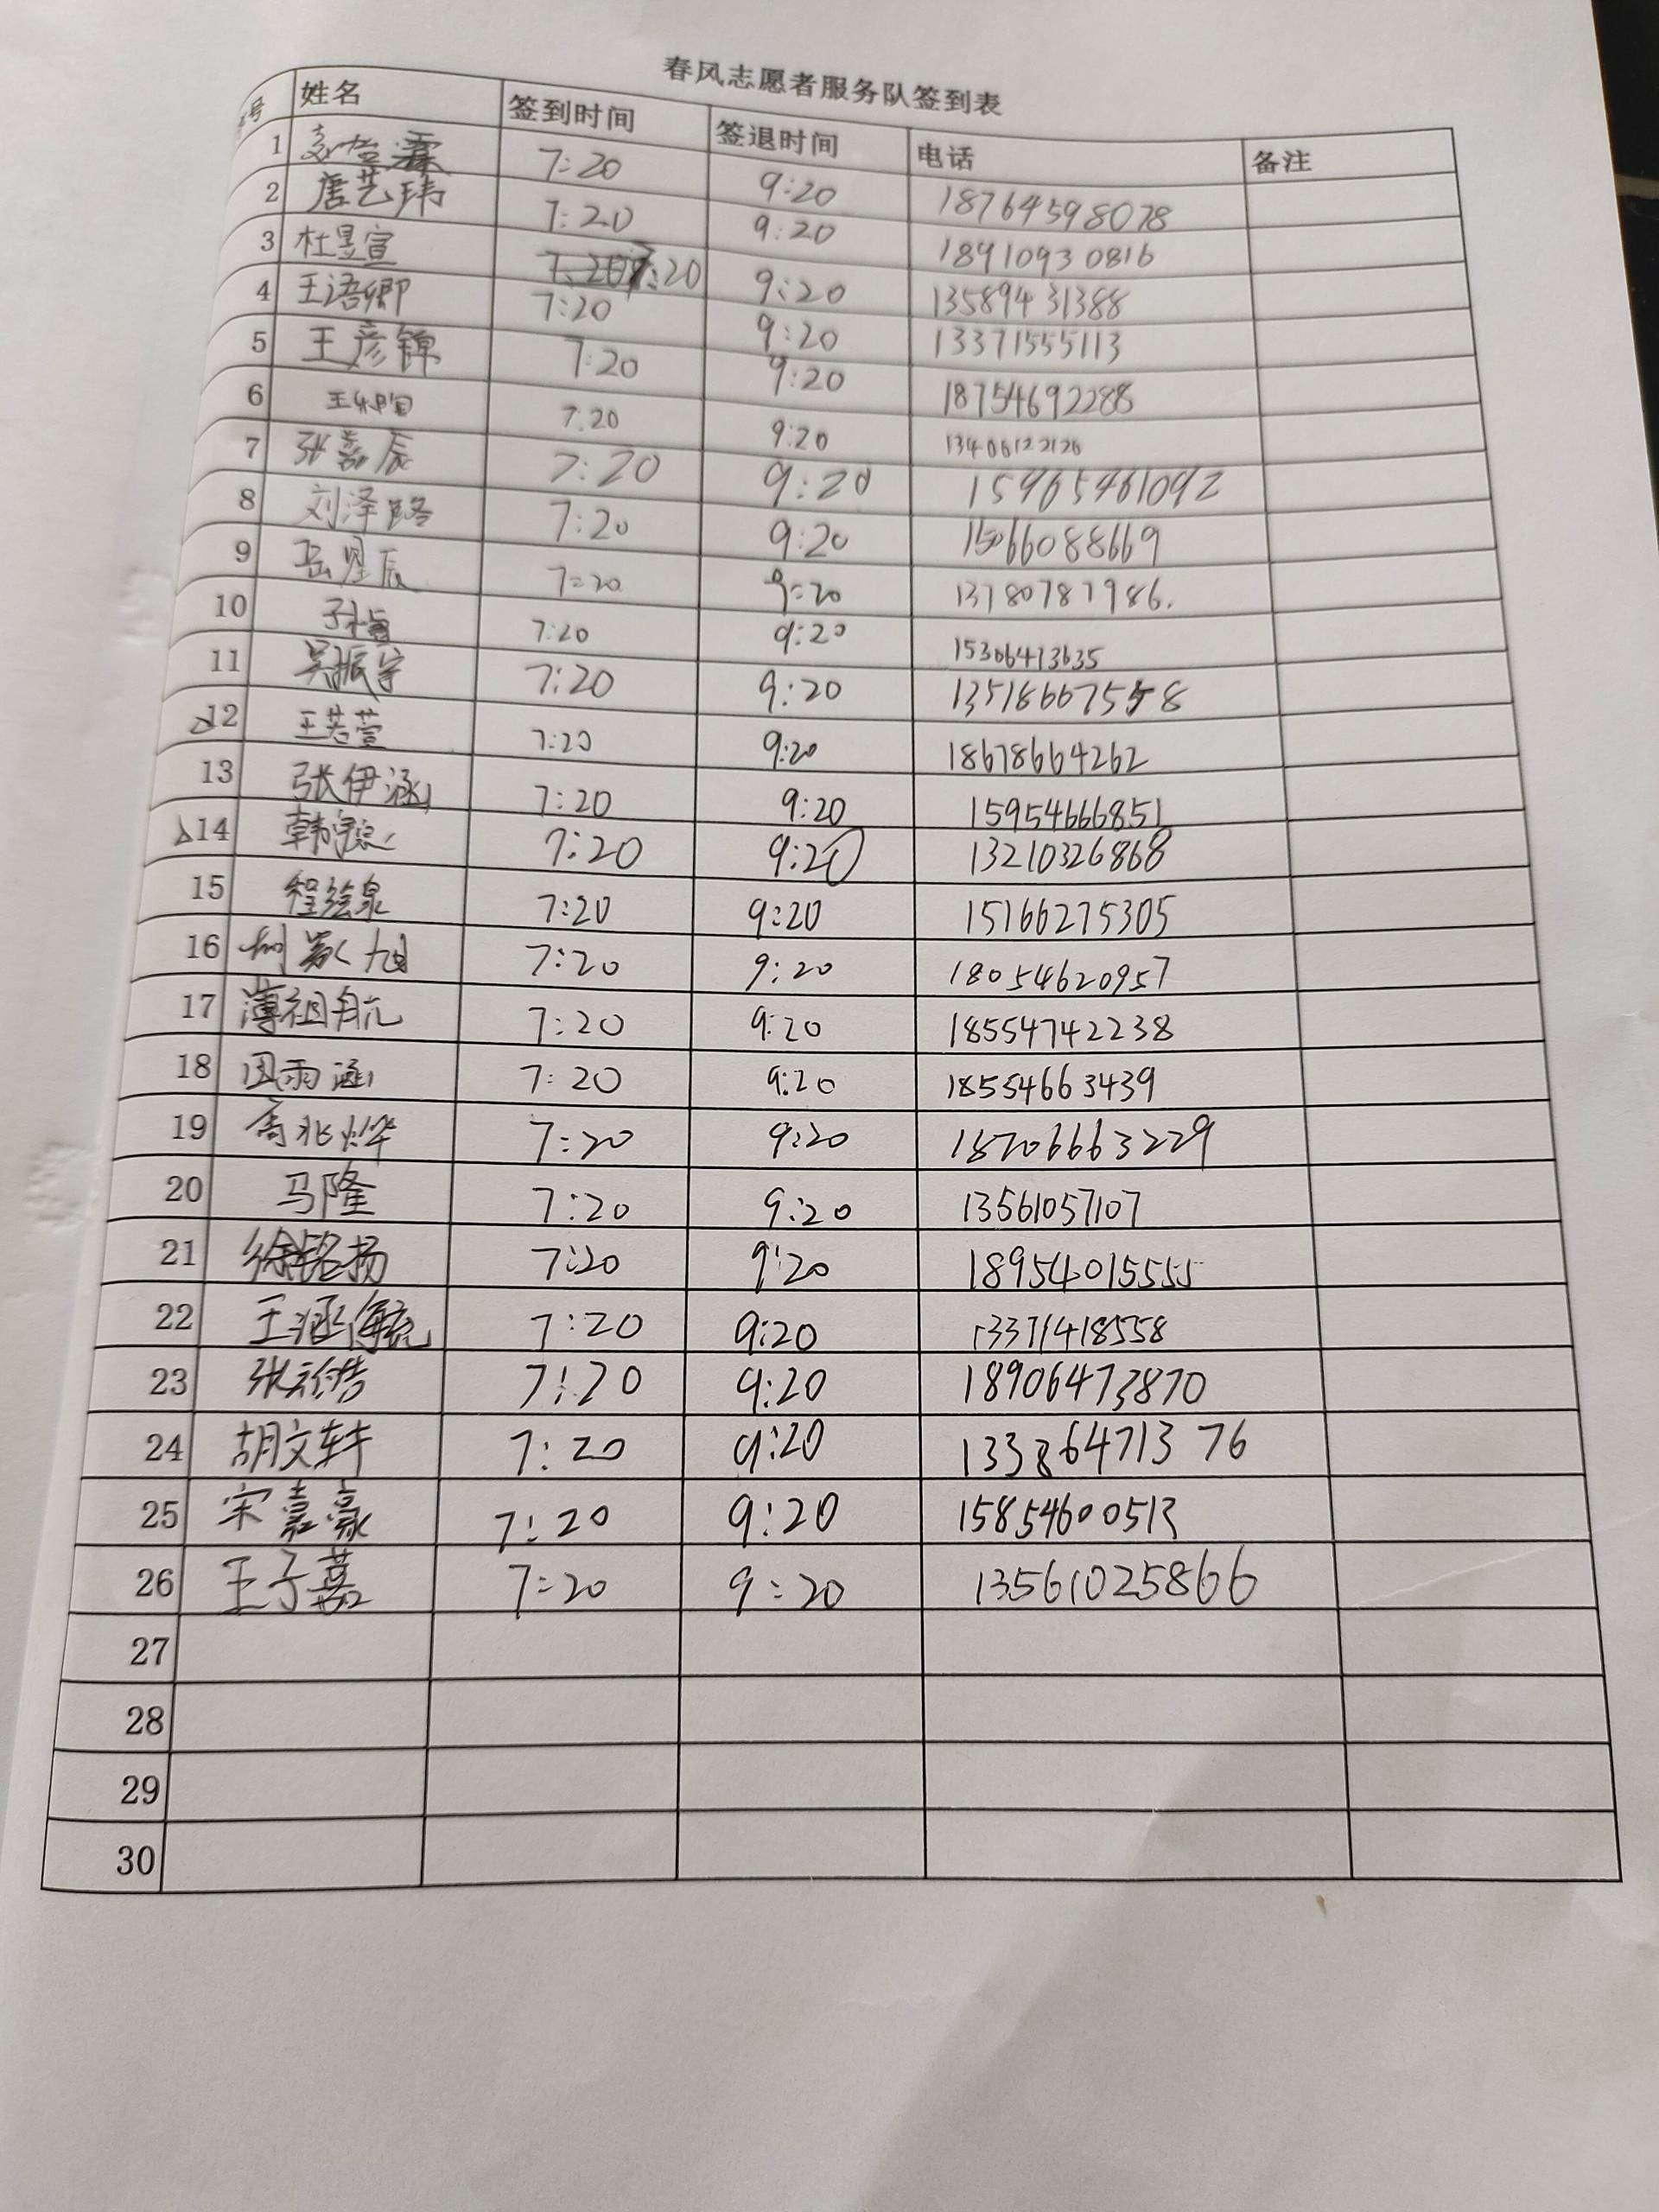 春风志愿者服务队签到表
号 姓名 签到时间 签退时间 电话 备注
1 7:20 9:20 18764598078
2 唐艺玮 7:20 9:20 18910930816
3 杜昱宣 7:20 9:20 13589431388
4 王语卿 7:20 9:20 13371555113
5 王彦锦 7:20 9:20 18754692288
6 7:20 9:20 13406122126
7 张嘉辰 7:20 9:20 15965461092
8 刘泽路 7:20 9:20 15066088669
9 岳圣辰 7:20 9:20 13780787986.
10 7:20 9:20 15306413635
11 吴振宇 7:20 9:20 13518667558
12 王若萱 7:20 9:20 18678664262
13 张伊涵 7:20 9:20 15954666851
14 7:20 9:20 13210326868
15 程绘泉 7:20 9:20 15166275305
16 7:20 9:20 18054620957
17 薄祖航 7:20 9:20 18554742238
18 田雨涵 7:20 9:20 18554663439
19 高兆烨 7:20 9:20 18706663229
20 马隆 7:20 9:20 13561057107
21 徐铭扬 7:20 9:20 18954015555
22 王涵 7:20 9:20 13371418558
23 7:20 9:20 18906473870
24 胡文轩 7:20 9:20 13386471376
25 宋嘉豪 7:20 9:20
26 王子嘉 7:20 9:20 13561025866
27
28
29
30